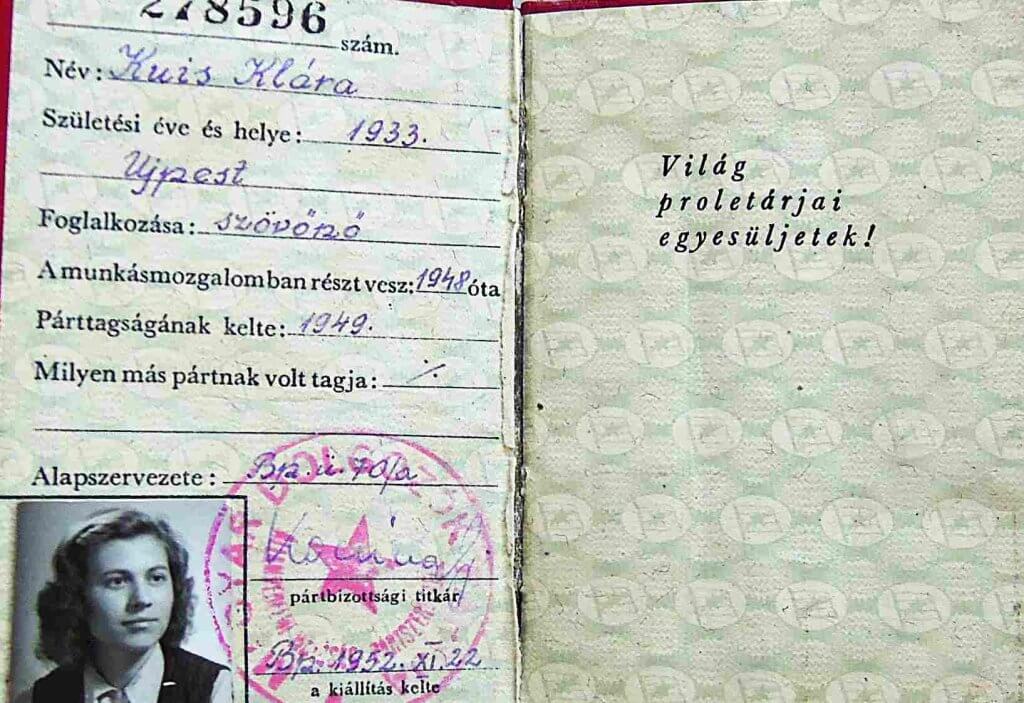 278596 szám.
Név: Kuis Klára
Születési éve és helye: 1933.
Ujpest
Foglalkozása: szövőnő
A munkásmozgalomban részt vesz: 1948 óta
Párttagságának kelte: 1949.
Milyen más pártnak volt tagja: ·/·
Alapszervezete: Bp. ü. 70/a
pártbizottsági titkár
Bp. 1952. XI. 22
a kiállítás kelte
Világ
proletárjai
egyesüljetek!